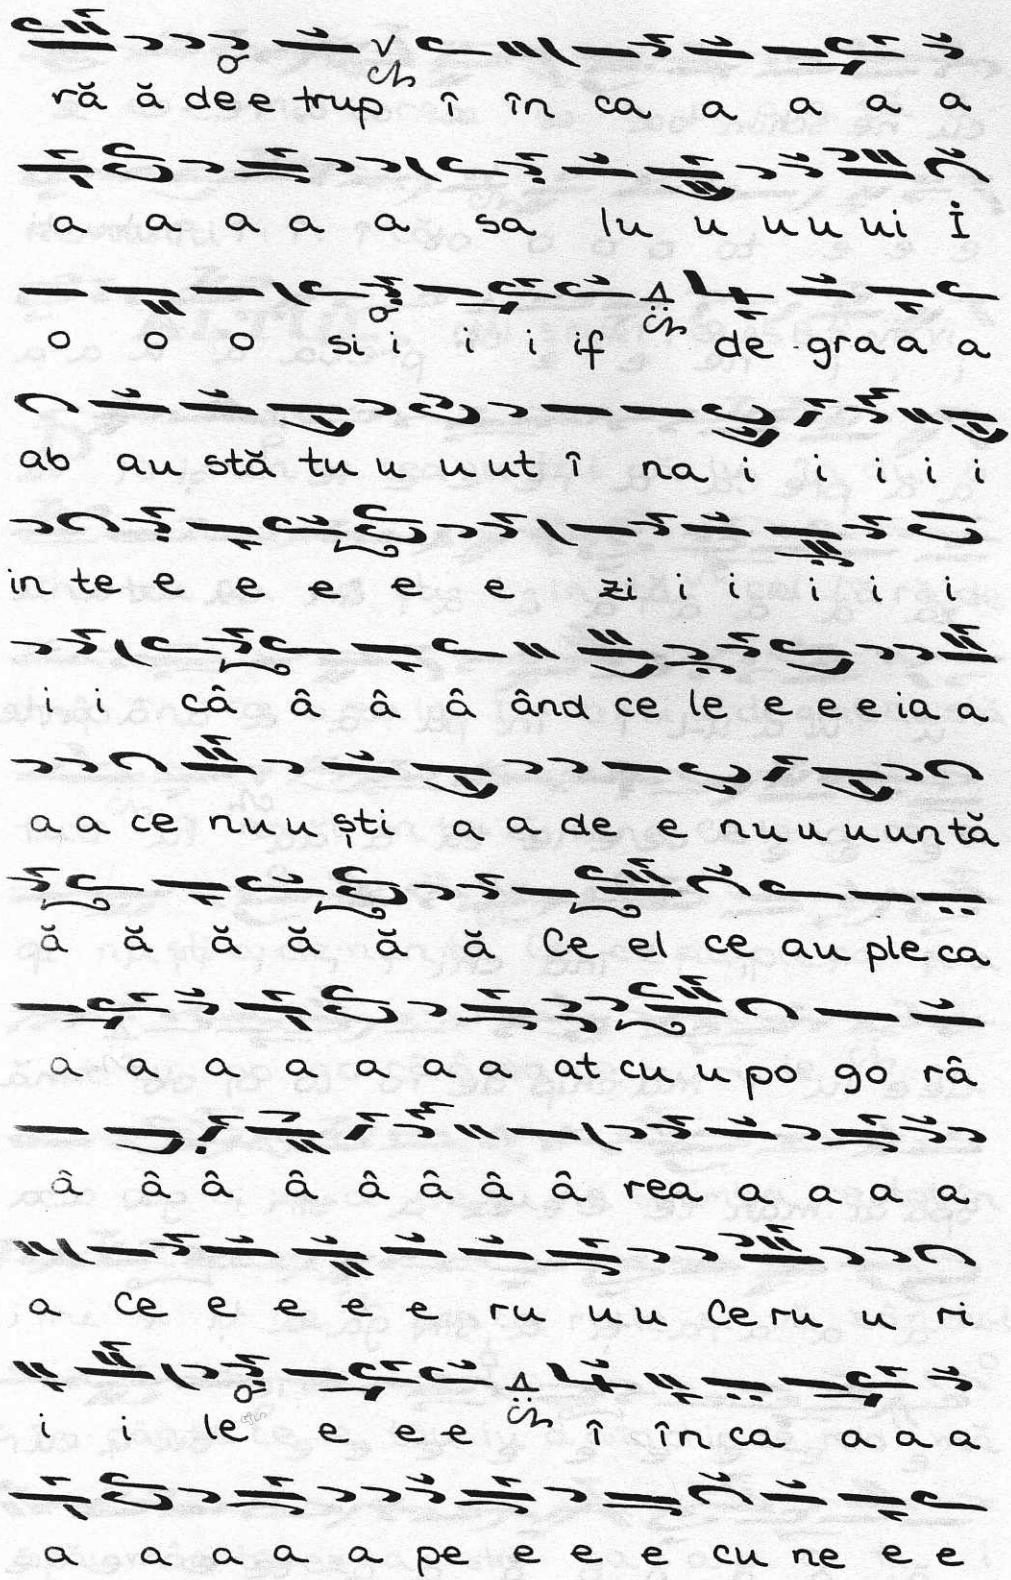 ră ă de e trup î în ca a a a a
a a a a a sa lu u u u ui I
o o o si i i i if de gra a a
ab au stă tu u u ut î na i i i i
in te e e e e e zi i i i i i
i i câ â â â ând ce le e e e ia a
a a ce nu u ști a a de e nu u u untă
ă ă ă ă ă ă Ce el ce au ple ca
a a a a a a a at cu u po go râ
â â â â â â â â rea a a a a
a Ce e e e e ru u u Ce ru u ri
i i le e e e î în ca a a a
a a a a a pe e e e cu ne e e